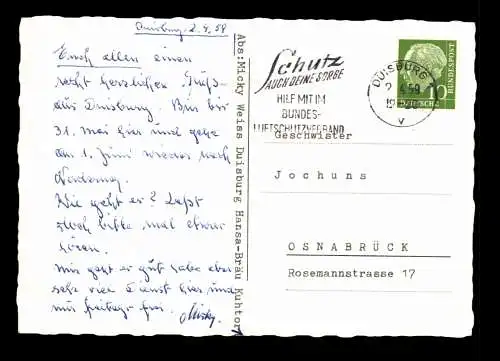 Duisburg, 2.4.59
Euch allen einen
recht herzlichen Gruß
aus Duisburg. Bin bis
31. Mai hier und gehe
am 1. Juni wieder nach
Norderney.
Wie geht es? Laßt
doch bitte mal etwas
hören.
Mir geht es gut habe aber
sehr viel Dienst hier und
nur freitags frei. Micky.
Abs: Micky Weiss Duisburg Hansa-Bräu Kuhtor
Schutz
AUCH DEINE SORGE
HILF MIT IM
BUNDES-
LUFTSCHUTZVERBAND
DUISBURG
2.4.59
V
10
DEUTSCHE
BUNDESPOST
Geschwister
Jochuns
OSNABRÜCK
Rosemannstrasse 17